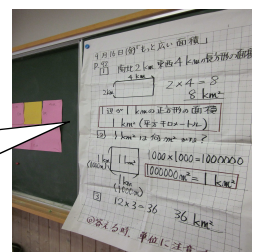 4月16日(旬)「もっと広い面積」
P.92
1 南北2km 東西4kmの長方形の面積
4km
2km
2×4=8
8km²
1辺が1kmの正方形の面積
1km²(平方キロメートル)
2 1km²は何m²かな?
1km²
1km
(1000m)
1000×1000=1000000
1000000m²=1km²
3
12×3=36
36km²
◎答える時、単位に注意